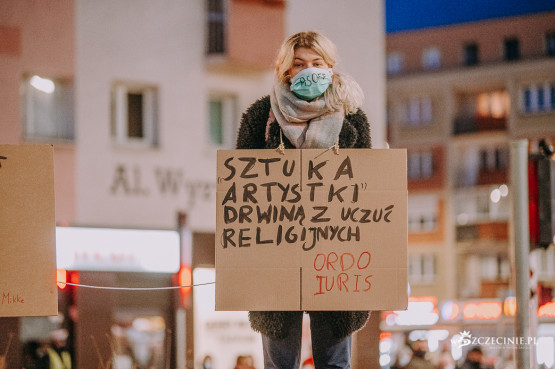 „SZTUKA
ARTYSTKI"
DRWINĄ Z UCZUĆ
RELIGIJNYCH
ORDO
IURIS
Mikke
AL Wy
SZCZECINIE.PL